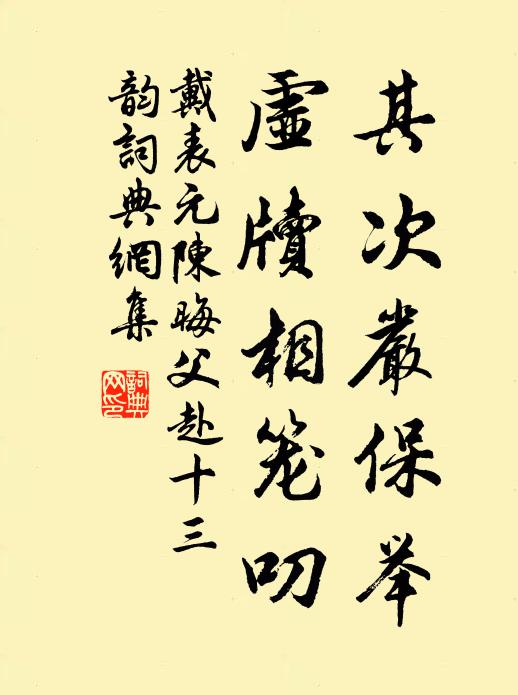 其次嚴保举
虛牘相笼叨
戴表元陳晦父赴十三
韵詞典網集
詞典
网印